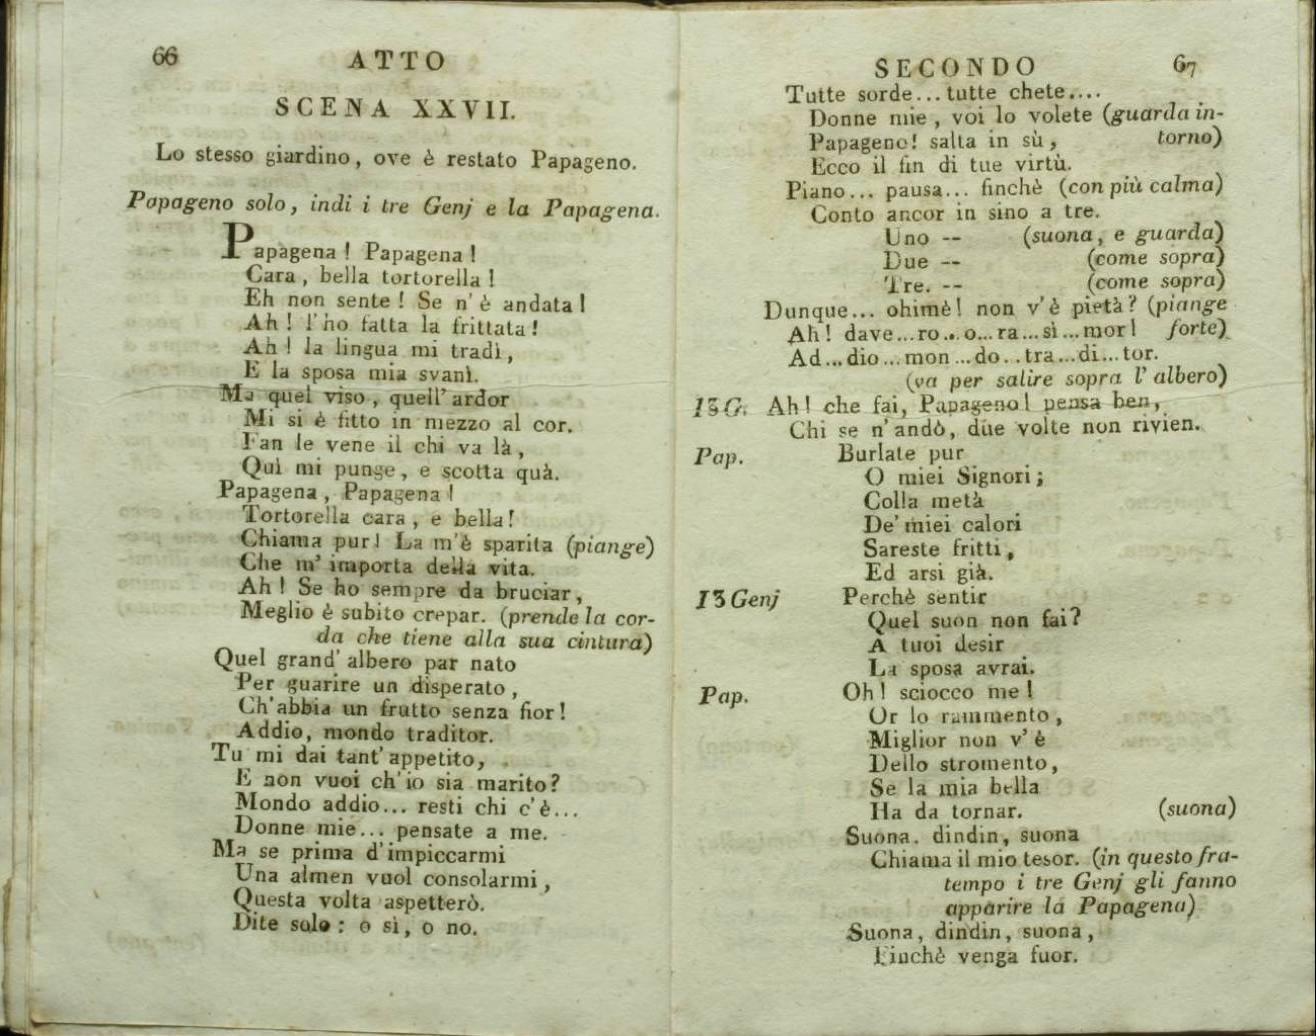 66
ATTO
SCENA XXVII.
Lo stesso giardino, ove è restato Papageno.
Papageno solo, indi i tre Genj e la Papagena.
Papagena! Papagena!
Cara, bella tortorella!
Eh non sente! Se n'è andata!
Ah! l'ho fatta la frittata!
Ah! la lingua mi tradì,
E la sposa mia svanì.
Ma quel viso, quell'ardor
Mi si è fitto in mezzo al cor.
Fan le vene il chi va là,
Quì mi punge, e scotta quà.
Papagena, Papagena!
Tortorella cara, e bella!
Chiama pur! La m'è sparita (piange)
Che m'importa della vita.
Ah! Se ho sempre da bruciar,
Meglio è subito crepar. (prende la cor-
da che tiene alla sua cintura)
Quel grand'albero par nato
Per guarire un disperato,
Ch'abbia un frutto senza fior!
Addio, mondo traditor.
Tu mi dai tant'appetito,
E non vuoi ch'io sia marito?
Mondo addio... resti chi c'è...
Donne mie... pensate a me.
Ma se prima d'impiccarmi
Una almen vuol consolarmi,
Questa volta aspetterò.
Dite solo: o sì, o no.
SECONDO
67
Tutte sorde... tutte chete....
Donne mie, voi lo volete (guarda in-
Papageno! salta in sù, torno)
Ecco il fin di tue virtù.
Piano... pausa... finchè (con più calma)
Conto ancor in sino a tre.
Uno -- (suona, e guarda)
Due -- (come sopra)
Tre. -- (come sopra)
Dunque... ohimè! non v'è pietà? (piange
Ah! dave...ro...o...ra...sì...mor! forte)
Ad...dio...mon...do..tra...di...tor.
(va per salire sopra l'albero)
I 3 G. Ah! che fai, Papageno! pensa ben,
Chi se n'andò, due volte non rivien.
Pap. Burlate pur
O miei Signori;
Colla metà
De' miei calori
Sareste fritti,
Ed arsi già.
I 3 Genj Perchè sentir
Quel suon non fai?
A tuoi desir
La sposa avrai.
Pap. Oh! sciocco me!
Or lo rammento,
Miglior non v'è
Dello stromento,
Se la mia bella
Ha da tornar. (suona)
Suona. dindin, suona
Chiama il mio tesor. (in questo fra-
tempo i tre Genj gli fanno
apparire la Papagena)
Suona, dindin, suona,
Finchè venga fuor.